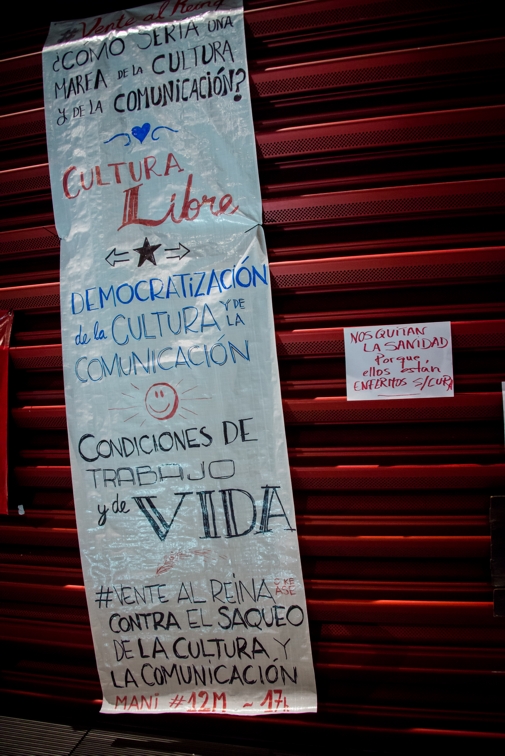 #Vente al Reina
¿CÓMO SERÍA UNA
MAREA DE LA CULTURA
Y DE LA COMUNICACIÓN?
CULTURA
Libre
DEMOCRATIZACIÓN
de la CULTURA Y DE LA
COMUNICACIÓN
CONDICIONES DE
TRABAJO
y de VIDA
#VENTE AL REINA
CONTRA EL SAQUEO
DE LA CULTURA Y
LA COMUNICACIÓN
MANI #12M ~ 17h
NOS QUITAN
LA SANIDAD
Porque
ellos están
ENFERMOS S/CURA